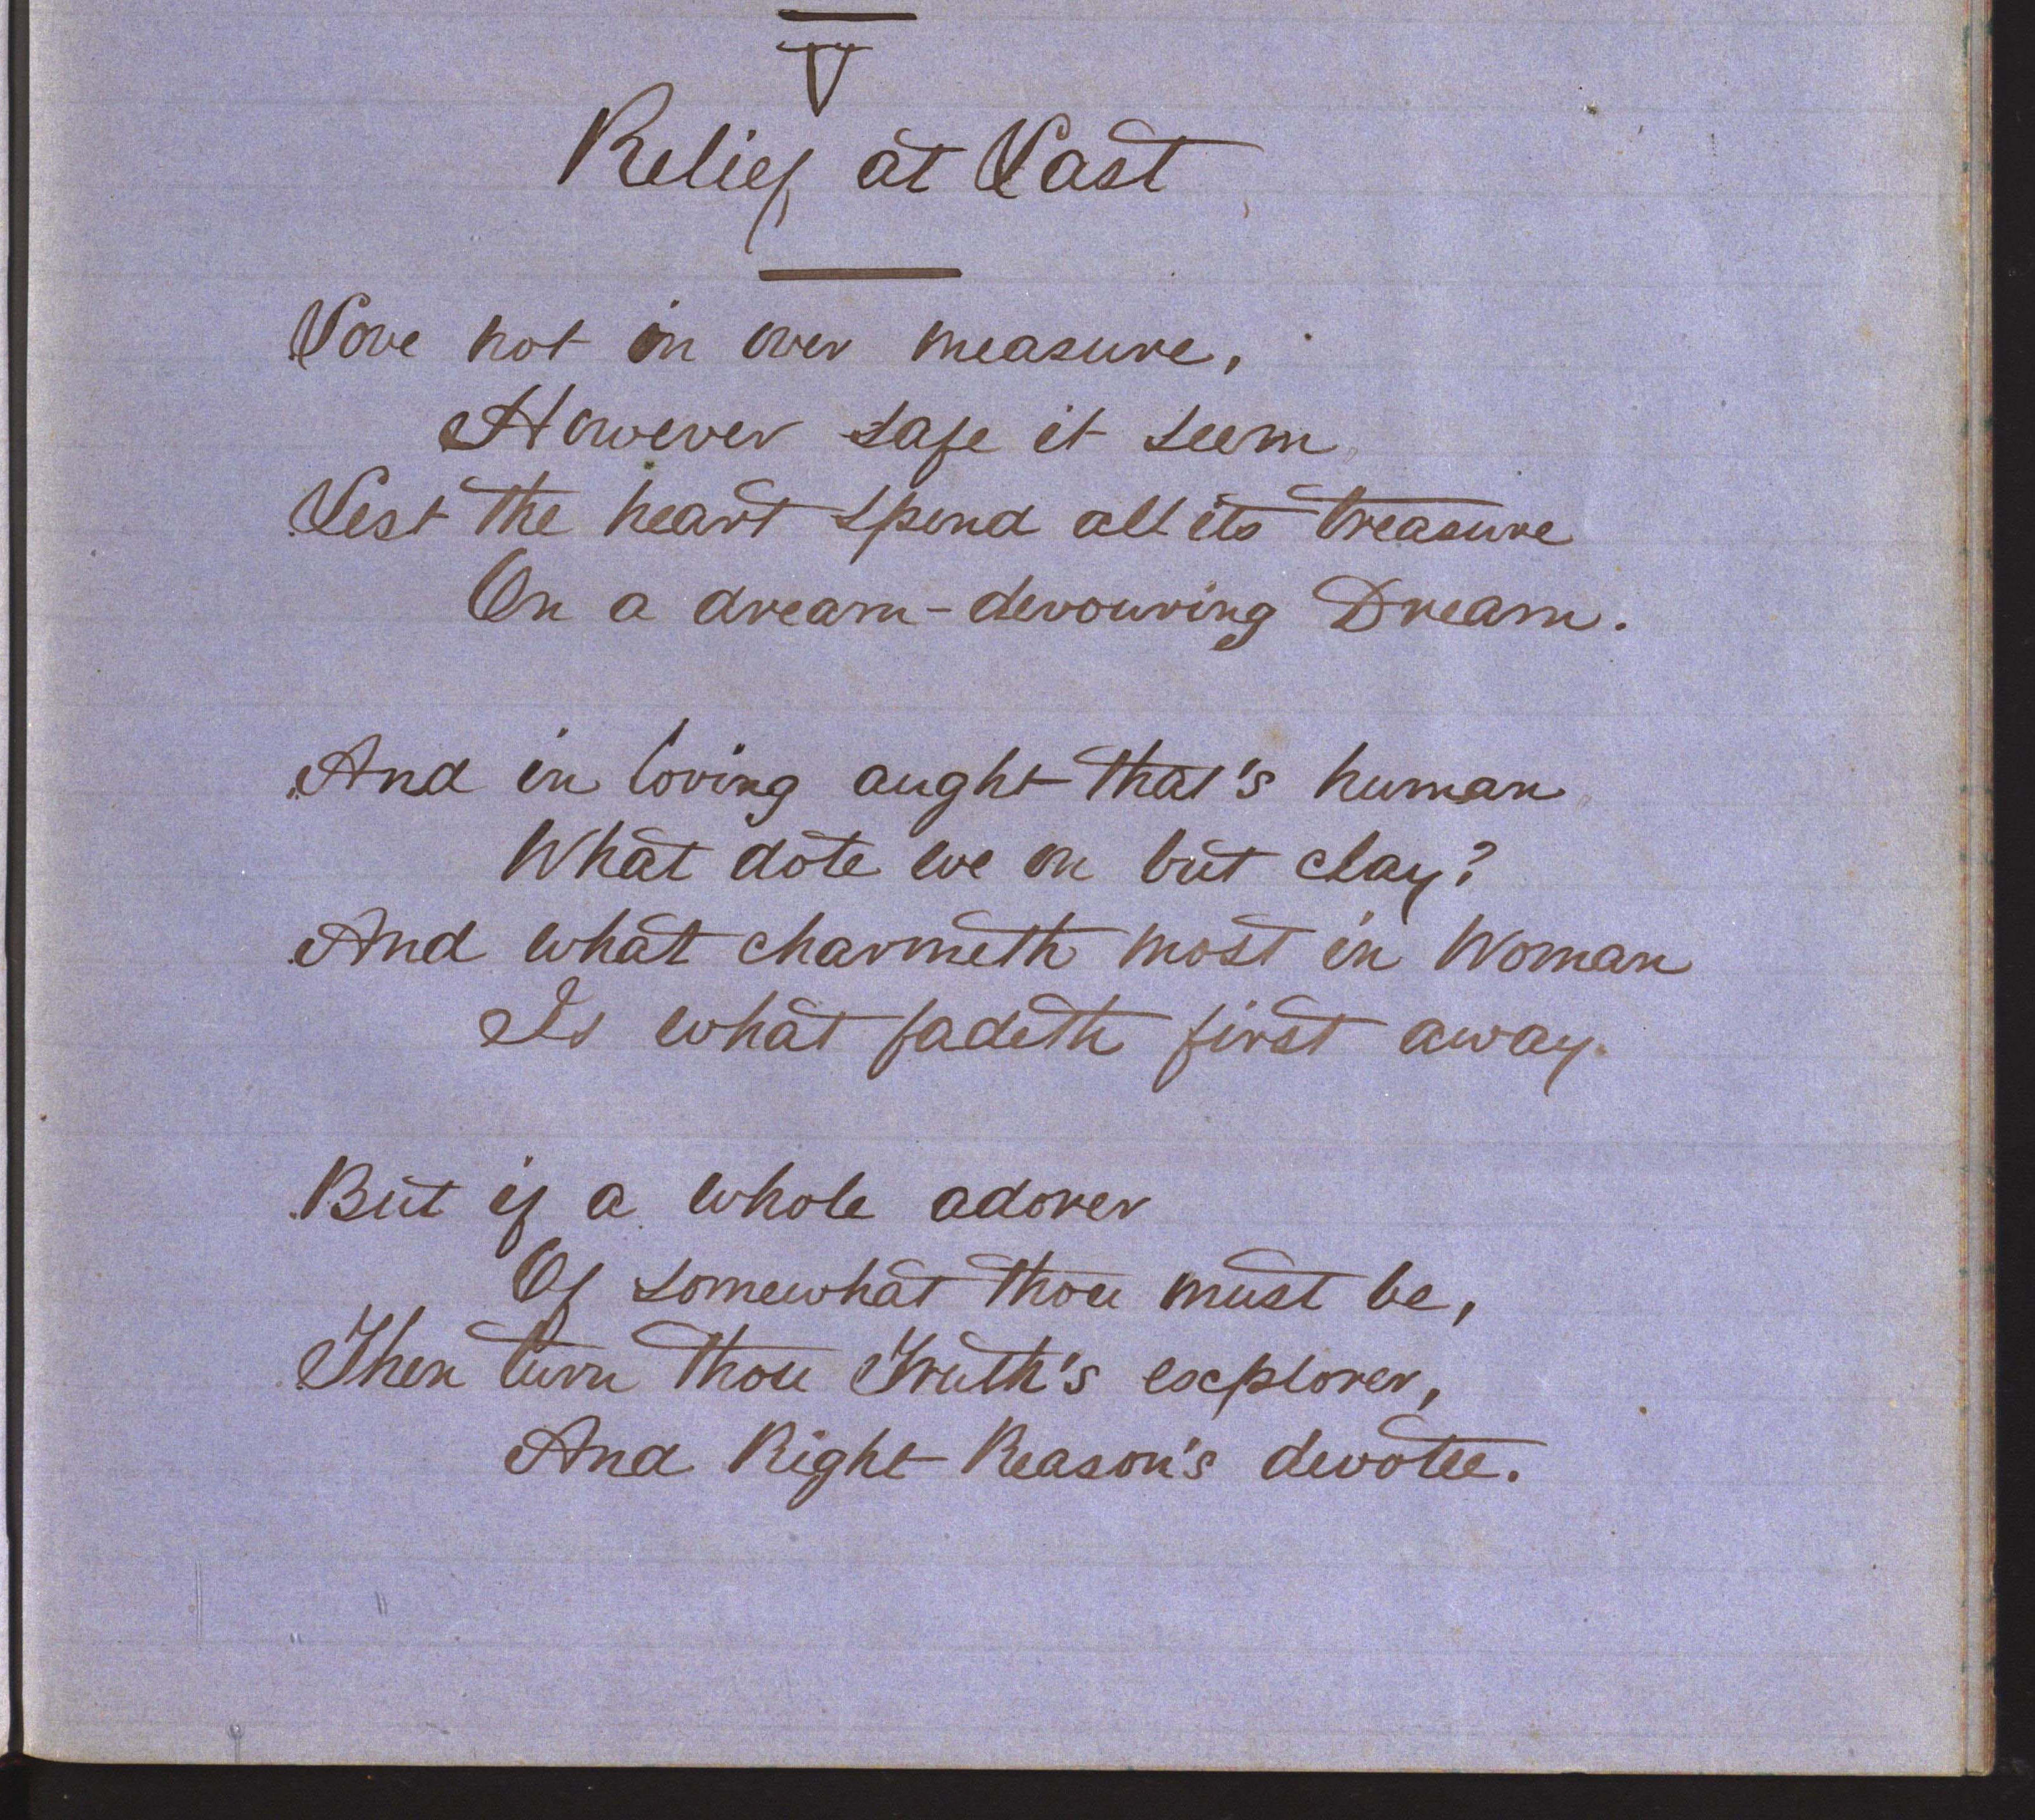 V
Relief at Last
Love not in over measure,
However safe it seem
Lest the heart spend all its treasure
On a dream-devouring Dream.
And in loving aught that's human
What dote we on but clay?
And what charmeth most in Woman
Is what fadeth first away.
But if a whole adorer
Of somewhat thou must be,
Then turn thou Truth's explorer,
And Right Reason's devotee.